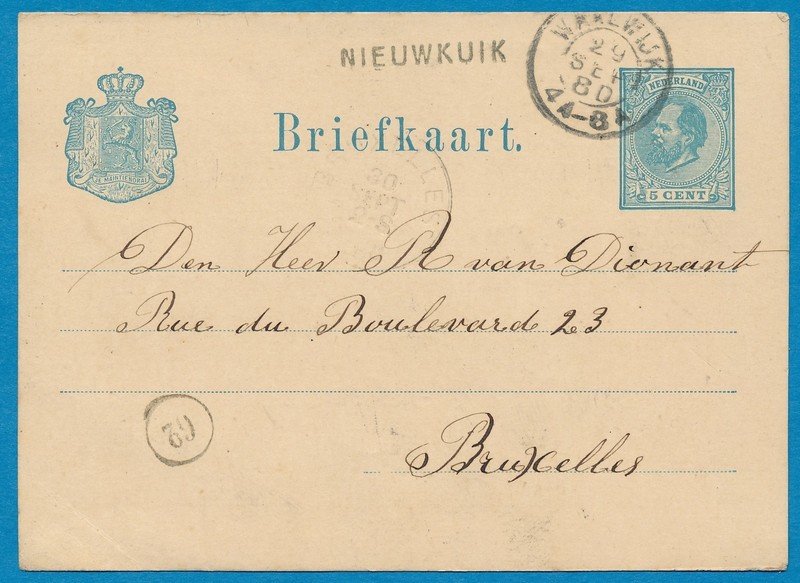 NIEUWKUIK
WAALWIJK
29
SEPT
80
4A-8A
NEDERLAND
5 CENT
JE MAINTIENDRAI
Briefkaart.
30
SEPT
Den Heer R van Dionant
Rue du Boulevard 23
Bruxelles